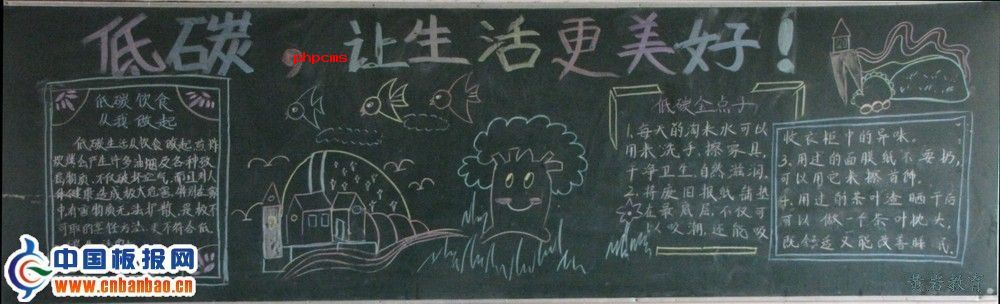 低碳，让生活更美好！
phpcms
低碳饮食
从我做起
低碳生活从饮食做起
会产生许多油烟及各种致
物质，不仅破坏空气，而且对人
健康造成极大危害，
中有害物质无法扩散，是极不
可取的烹饪方法，更不符合低
低碳金点子
1.每天的淘米水可以
用来洗手，擦家具，
干净卫生，自然滋润。
2.将废旧报纸铺垫
在最底层，不仅可
以吸潮，还能吸
收衣柜中的异味。
3.用过的面膜纸不要扔，
可以用它来擦首饰。
4.用过的茶叶渣晒干后
可以做一个茶叶枕头，
既舒适又能改善睡眠。
中国板报网
www.cnbanbao.cn
黄岩教育